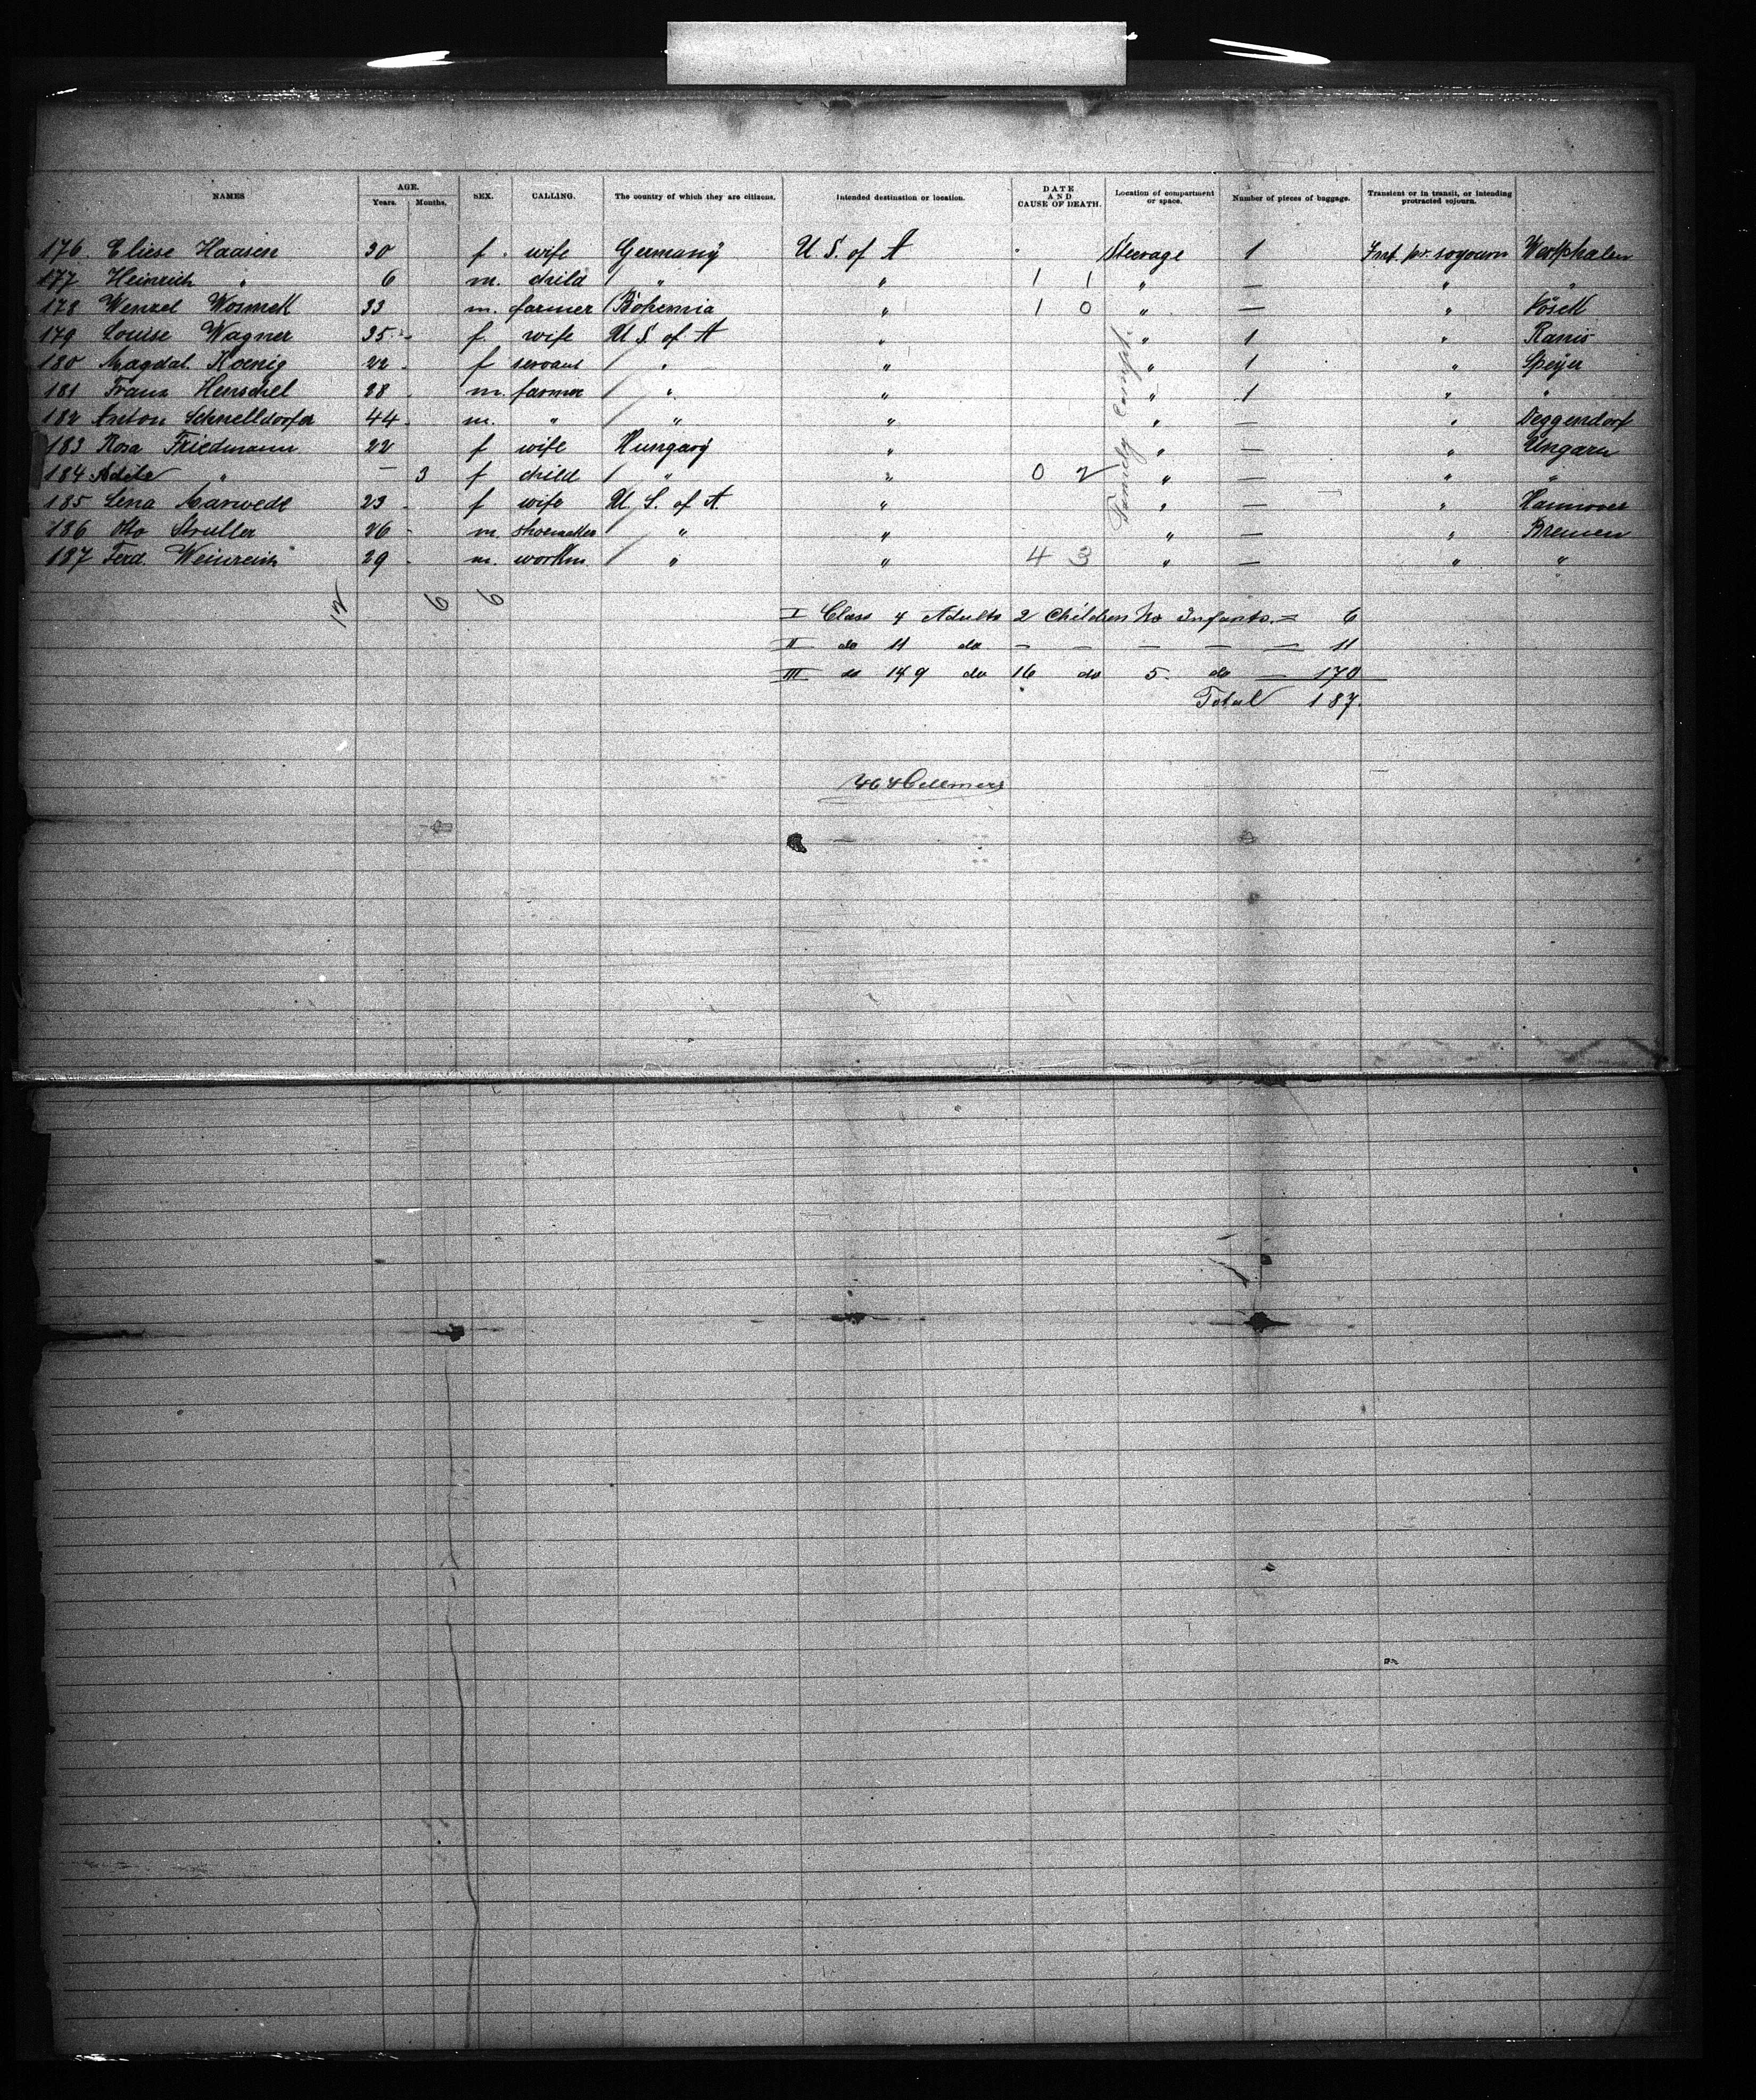 NAMES AGE. Years. Months. SEX. CALLING. The country of which they are citizens. Intended destination or location. DATE AND CAUSE OF DEATH. Location of compartment or space. Number of pieces of baggage. Transient or in transit, or intending protracted sojourn.
176. Eliese Haasen 30 f. wife Germany U S. of A Steerage 1 Int. pr. sogourn Westphalen
177 Heinrich " 6 m. child " " 1 1 " — " "
178 Wenzel Wosmek 33 m. farmer Bohemia " 1 0 " — "
179 Louise Wagner 35 f. wife U S of A " " 1 " Ranis
180 Magdal. Koenig 22 f servant " " " 1 " Speyer
181 Franz Henschel 28 m. farmer " " " 1 " "
182 Anton Schnelldorfer 44 m. " " " " — " Deggendorf
183 Rosa Friedmann 22 f wife Hungary " " — " Ungarn
184 Adele " — 3 f child " " 0 2 " — " "
185 Lena Marwede 23 f wife U. S. of A. " " — " Hannover
186 Otto Struller 26 m. shoemaker " " " — " Bremen
187 Ferd. Weinreich 29 m. workm. " " 4 3 " — " "
Family Compt.
12 6 6
I Class 4 Adults 2 Children No Infants. = 6
II do 11 do — — — — — 11
III do 149 do 16 do 5 do — 170
Total 187.